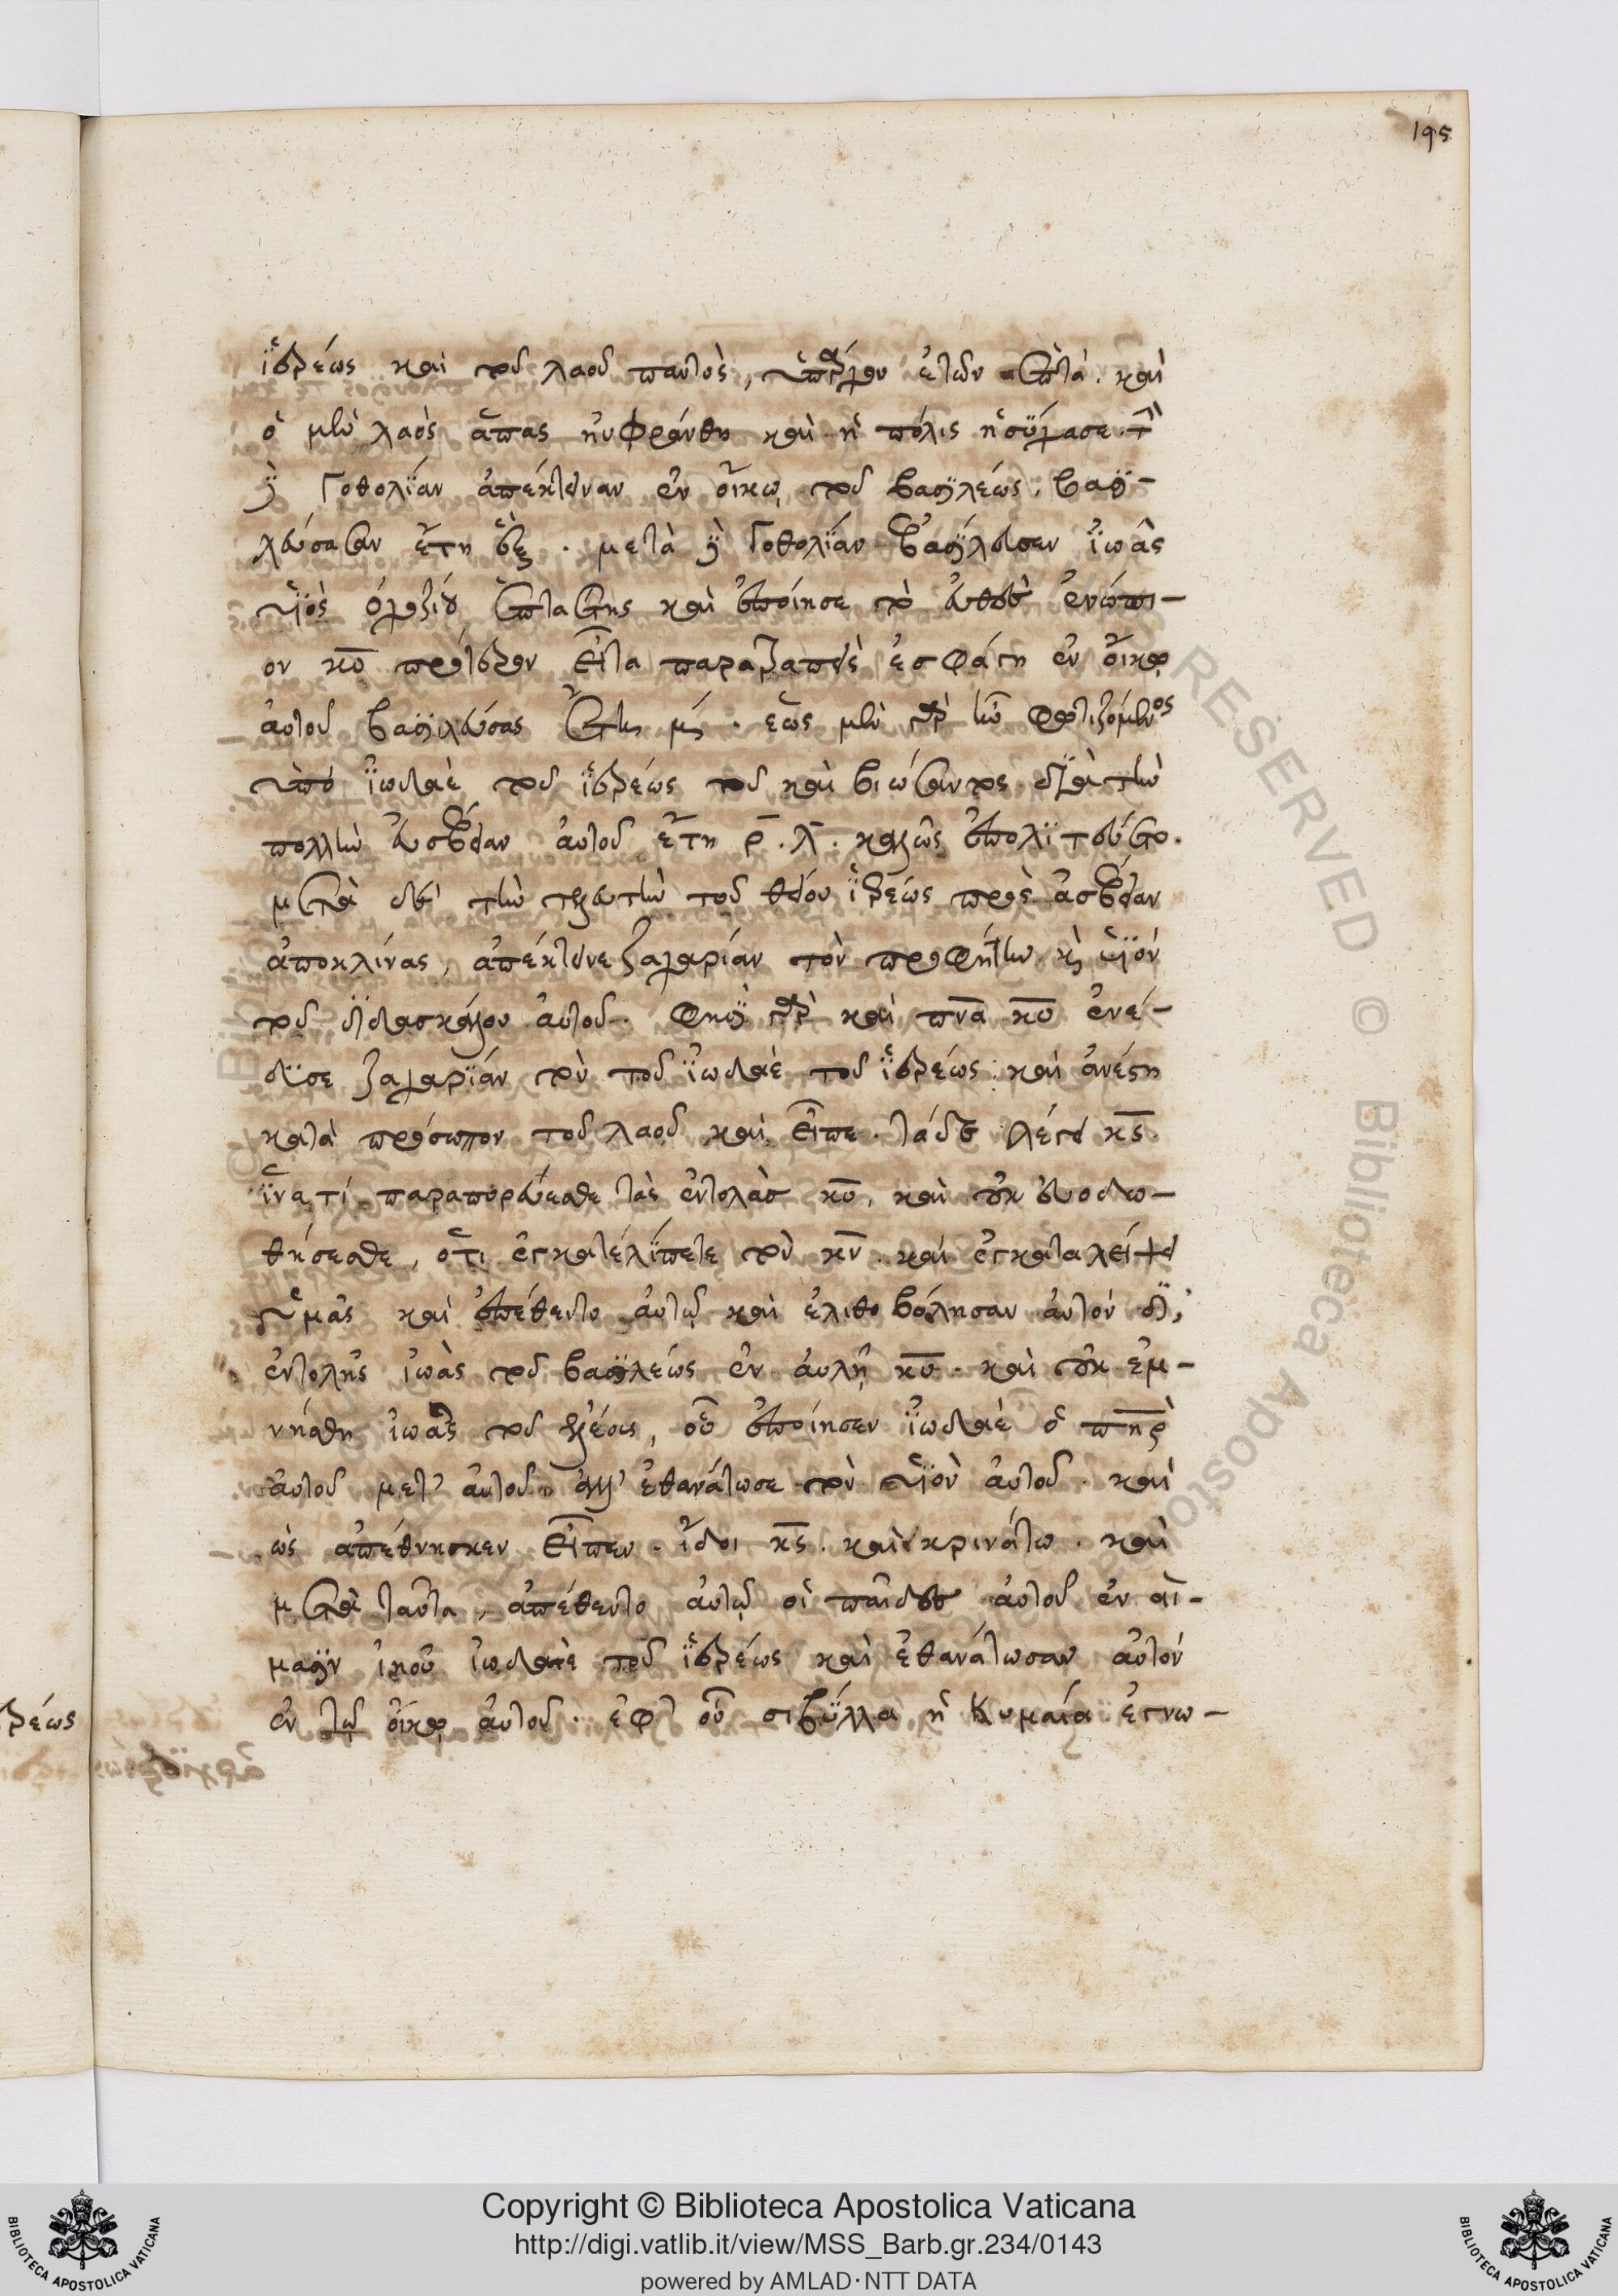 195
ἱερέως καὶ τοῦ λαοῦ παντὸς, ὑπάρχων ἐτῶν ἑπτά. καὶ
ὁ μὲν λαὸς ἅπας ηὐφράνθη καὶ ἡ πόλις ἡσύχασε. τὴν
δὲ Γοθολΐαν ἀπέκτειναν ἐν οἴκω τοῦ βασϊλέως, βασϊ-
λεύσασαν ἔτη ἓξ. μετὰ δὲ Γοθολΐαν ἐβασΐλευσεν Ἰωᾶς
υἱὸς Ὀχοζίου ἑπταετὴς καὶ ἐποίησε τὸ εὐθὲς ἐνώπι-
ον κυ πρότερον εἶτα παραβαπτεὶς ἐσφάγη ἐν οἴκω
αὐτοῦ βασιλεύσας ἔτη μ. ἕως μὲν γὰρ ἦν φωτιζόμενος
ὑπὸ Ἰωδαὲ τοῦ ἱερέως τοῦ καὶ βιώσαντος διὰ τὴν
πολλὴν εὐσέβειαν αὐτοῦ ἔτη ρ.λ. καλῶς ἐπολϊτεύετο.
μετὰ δὲ τὴν τελευτὴν τοῦ θείου ἱερέως πρὸς ἀσέβειαν
ἀποκλίνας, ἀπέκτεινε Ζαχαρίαν τὸν προφήτην κ υἱὸν
τοῦ διδασκάλου αὐτοῦ. φησῒ γὰρ καὶ πνα κυ ἐνέ-
δϋσε Ζαχαρΐαν τὸν τοῦ Ἰωδαὲ τοῦ ἱερέως: καὶ ἀνέστη
κατὰ πρόσωπον τοῦ λαοῦ καὶ εἶπε. τάδε λέγει κς.
ἵνα τί παραπορεύεσθε τὰς ἐντολὰσ κυ, καὶ οὐκ εὐοδω-
θήσεσθε, ὅτι ἐγκατελΐπετε τὸν κν. καὶ ἐγκαταλείψει
ὑμᾶς καὶ ἐπέθεντο αὐτῶ καὶ ἐλιθοβόλησαν αὐτὸν δϊ'
ἐντολῆς ἰωὰς τοῦ βασϊλέως ἐν αὐλῆ κυ. καὶ οὐκ ἐμ-
νήσθη ἰωᾶς τοῦ ἐλέους, οὗ ἐποίησεν Ἰωδαὲ ὁ πηρ
αὐτοῦ μετ' αὐτοῦ, ἀλλ' ἐθανάτωσε τὸν υἱὸν αὐτοῦ. καὶ
ὡς ἀπέθνησκεν εἶπεν. ἴδοι κς. καὶ κρινάτω. καὶ
μετὰ ταῦτα, ἀπέθεντο αὐτῶ οἱ παῖδες αὐτοῦ ἐν αἵ-
μασϊν υἱοῦ Ἰωδαὲ τοῦ ἱερέως καὶ ἐθανάτωσαν αὐτὸν
ἐν τῶ οἴκω αὐτοῦ. ἐφ' οὗ σιβΰλλα ἡ Κυμαία ἐγνω-
ρέως
Copyright © Biblioteca Apostolica Vaticana
http://digi.vatlib.it/view/MSS_Barb.gr.234/0143
powered by AMLAD·NTT DATA
BIBLIOTECA APOSTOLICA VATICANA
BIBLIOTECA APOSTOLICA VATICANA